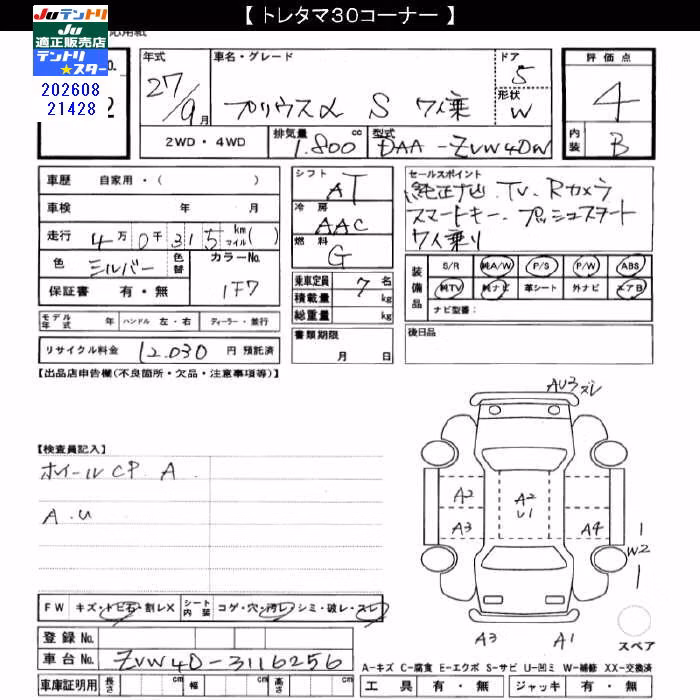 【 トレタマ30コーナー 】
Juテントリ
Ju
適正販売店
テントリ
★スター
202608
21428
年式
27/9月
車名・グレード
プリウスα S 7人乗
ドア
5
形状
W
評価点
4
内装
B
2WD・4WD
排気量
1.800 cc
型式
DAA-ZVW40W
車歴 自家用・( )
車検 年 月
走行 4万0千315 km マイル( )
色 シルバー 色替 カラーNo. 1F7
保証書 有・無
モデル年式 年 ハンドル 左・右 ディーラー・並行
リサイクル料金 12.030 円 預託済
シフト AT
冷房 AAC
燃料 G
乗車定員 7 名
積載量 kg
総重量 kg
書類期限
月 日
セールスポイント
純正ナビ.TV.Rカメラ
スマートキー.プッシュスタート
7人乗り
装備品
S/R 純A/W P/S P/W ABS
純TV 純ナビ 革シート 外ナビ エアB
ナビ型番:
後日品
【出品店申告欄(不良箇所・欠品・注意事項等)】
【検査員記入】
ホイールCP A.
A.U
FW キズ・トビ石・割レX シート内装 コゲ・穴・汚レ・シミ・破レ・スレ
登録No.
車台No. ZVW40-3116256
車庫証明用 長さ cm 幅 cm 高さ cm
AU3 ズレ
A2
A3
A2
U1
A4
W2
A3
A1
スペア
A-キズ C-腐食 E-エクボ S-サビ U-凹ミ W-補修 XX-交換済
工具 有・無 ジャッキ 有・無